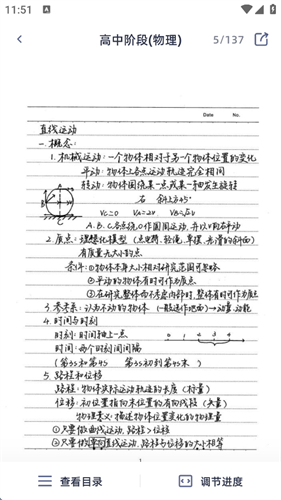 11:51
高中阶段(物理)
5/137
Date
No.
直线运动
一.概念:
1.机械运动:一个物体相对于另一个物体位置的变化
平动:物体上各点运动轨迹完全相同
转动:物体围绕某一点或某一轴发生旋转
右 斜上方45°
Vc=0 VA=2v VB=√2v
A.B.C.各点绕O作圆周运动,并以V向右平动
2.质点:理想化模型(点电荷,轻绳,单摆,光滑的斜面)
有质量无大小的点
条件:①物体本身大小相对研究范围可忽略
②平动的物体有时可作为质点
③在研究整体而不考虑内部时,整体有时可作为质点
3.参考系:认为不动的物体 (一般选作地面)→动量,动能
4.时间与时刻
时刻:时间轴上一点
时间:两个时刻间间隔
0 1 2 3 4
(第3s和第4s 第3s初到第4s末)
5.路程和位移
路程:物体实际运动轨迹的长度(标量)
位移:初位置指向末位置的有向线段(矢量)
物理意义:描述物体位置变化的物理量
①只要做曲线运动,路程>位移
②只要做单向直线运动,路程与位移的大小相等
1
查看目录
调节进度